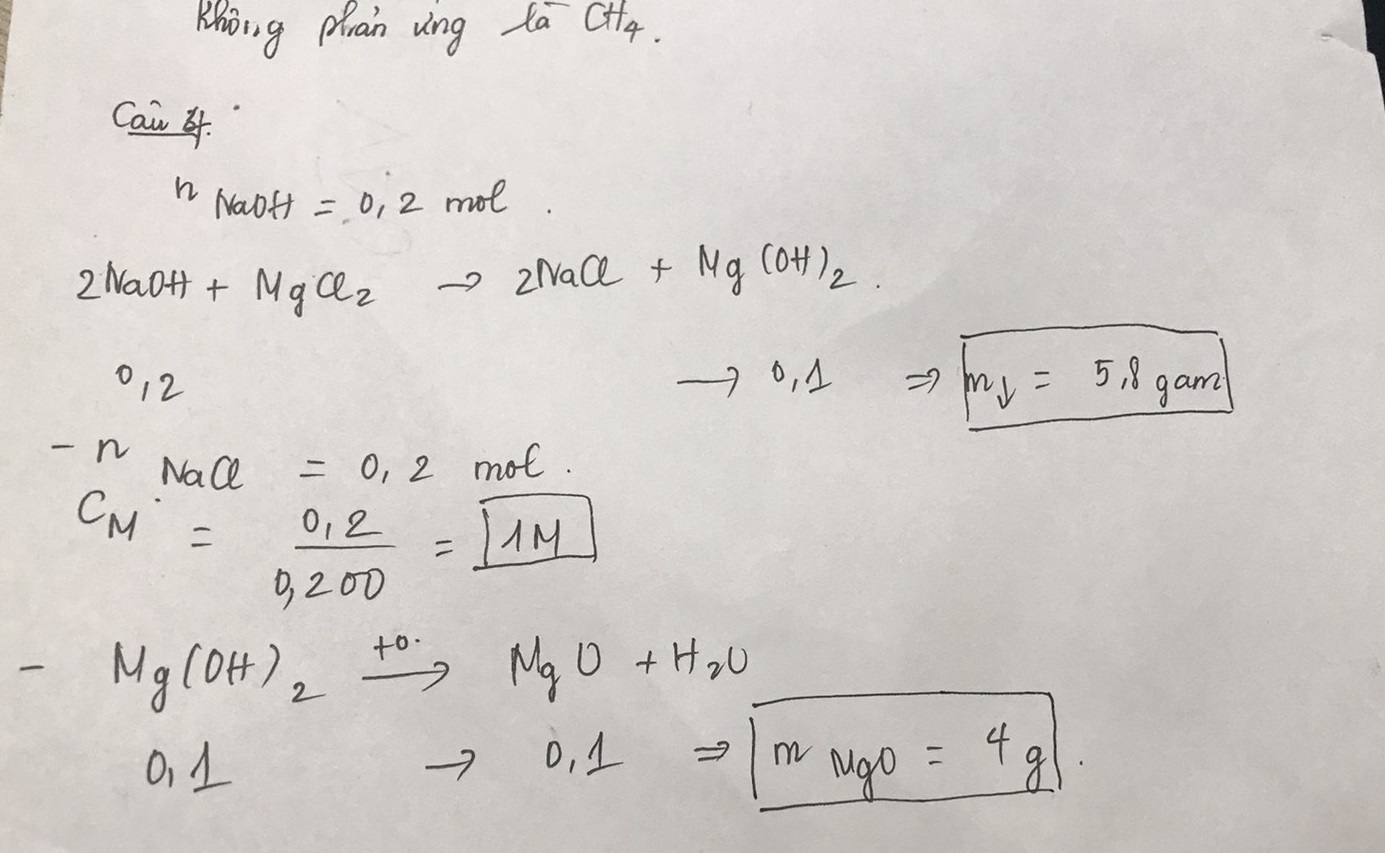 Không phản ứng là CH4.
Câu
n NaOH = 0,2 mol.
2NaOH + MgCl2 → 2NaCl + Mg(OH)2.
0,2 → 0,1 ⇒ m↓ = 5,8 gam
- n NaCl = 0,2 mol.
CM = 0,2 / 0,200 = 1M
- Mg(OH)2 +0. → MgO + H2O
0,1 → 0,1 ⇒ m MgO = 4g.